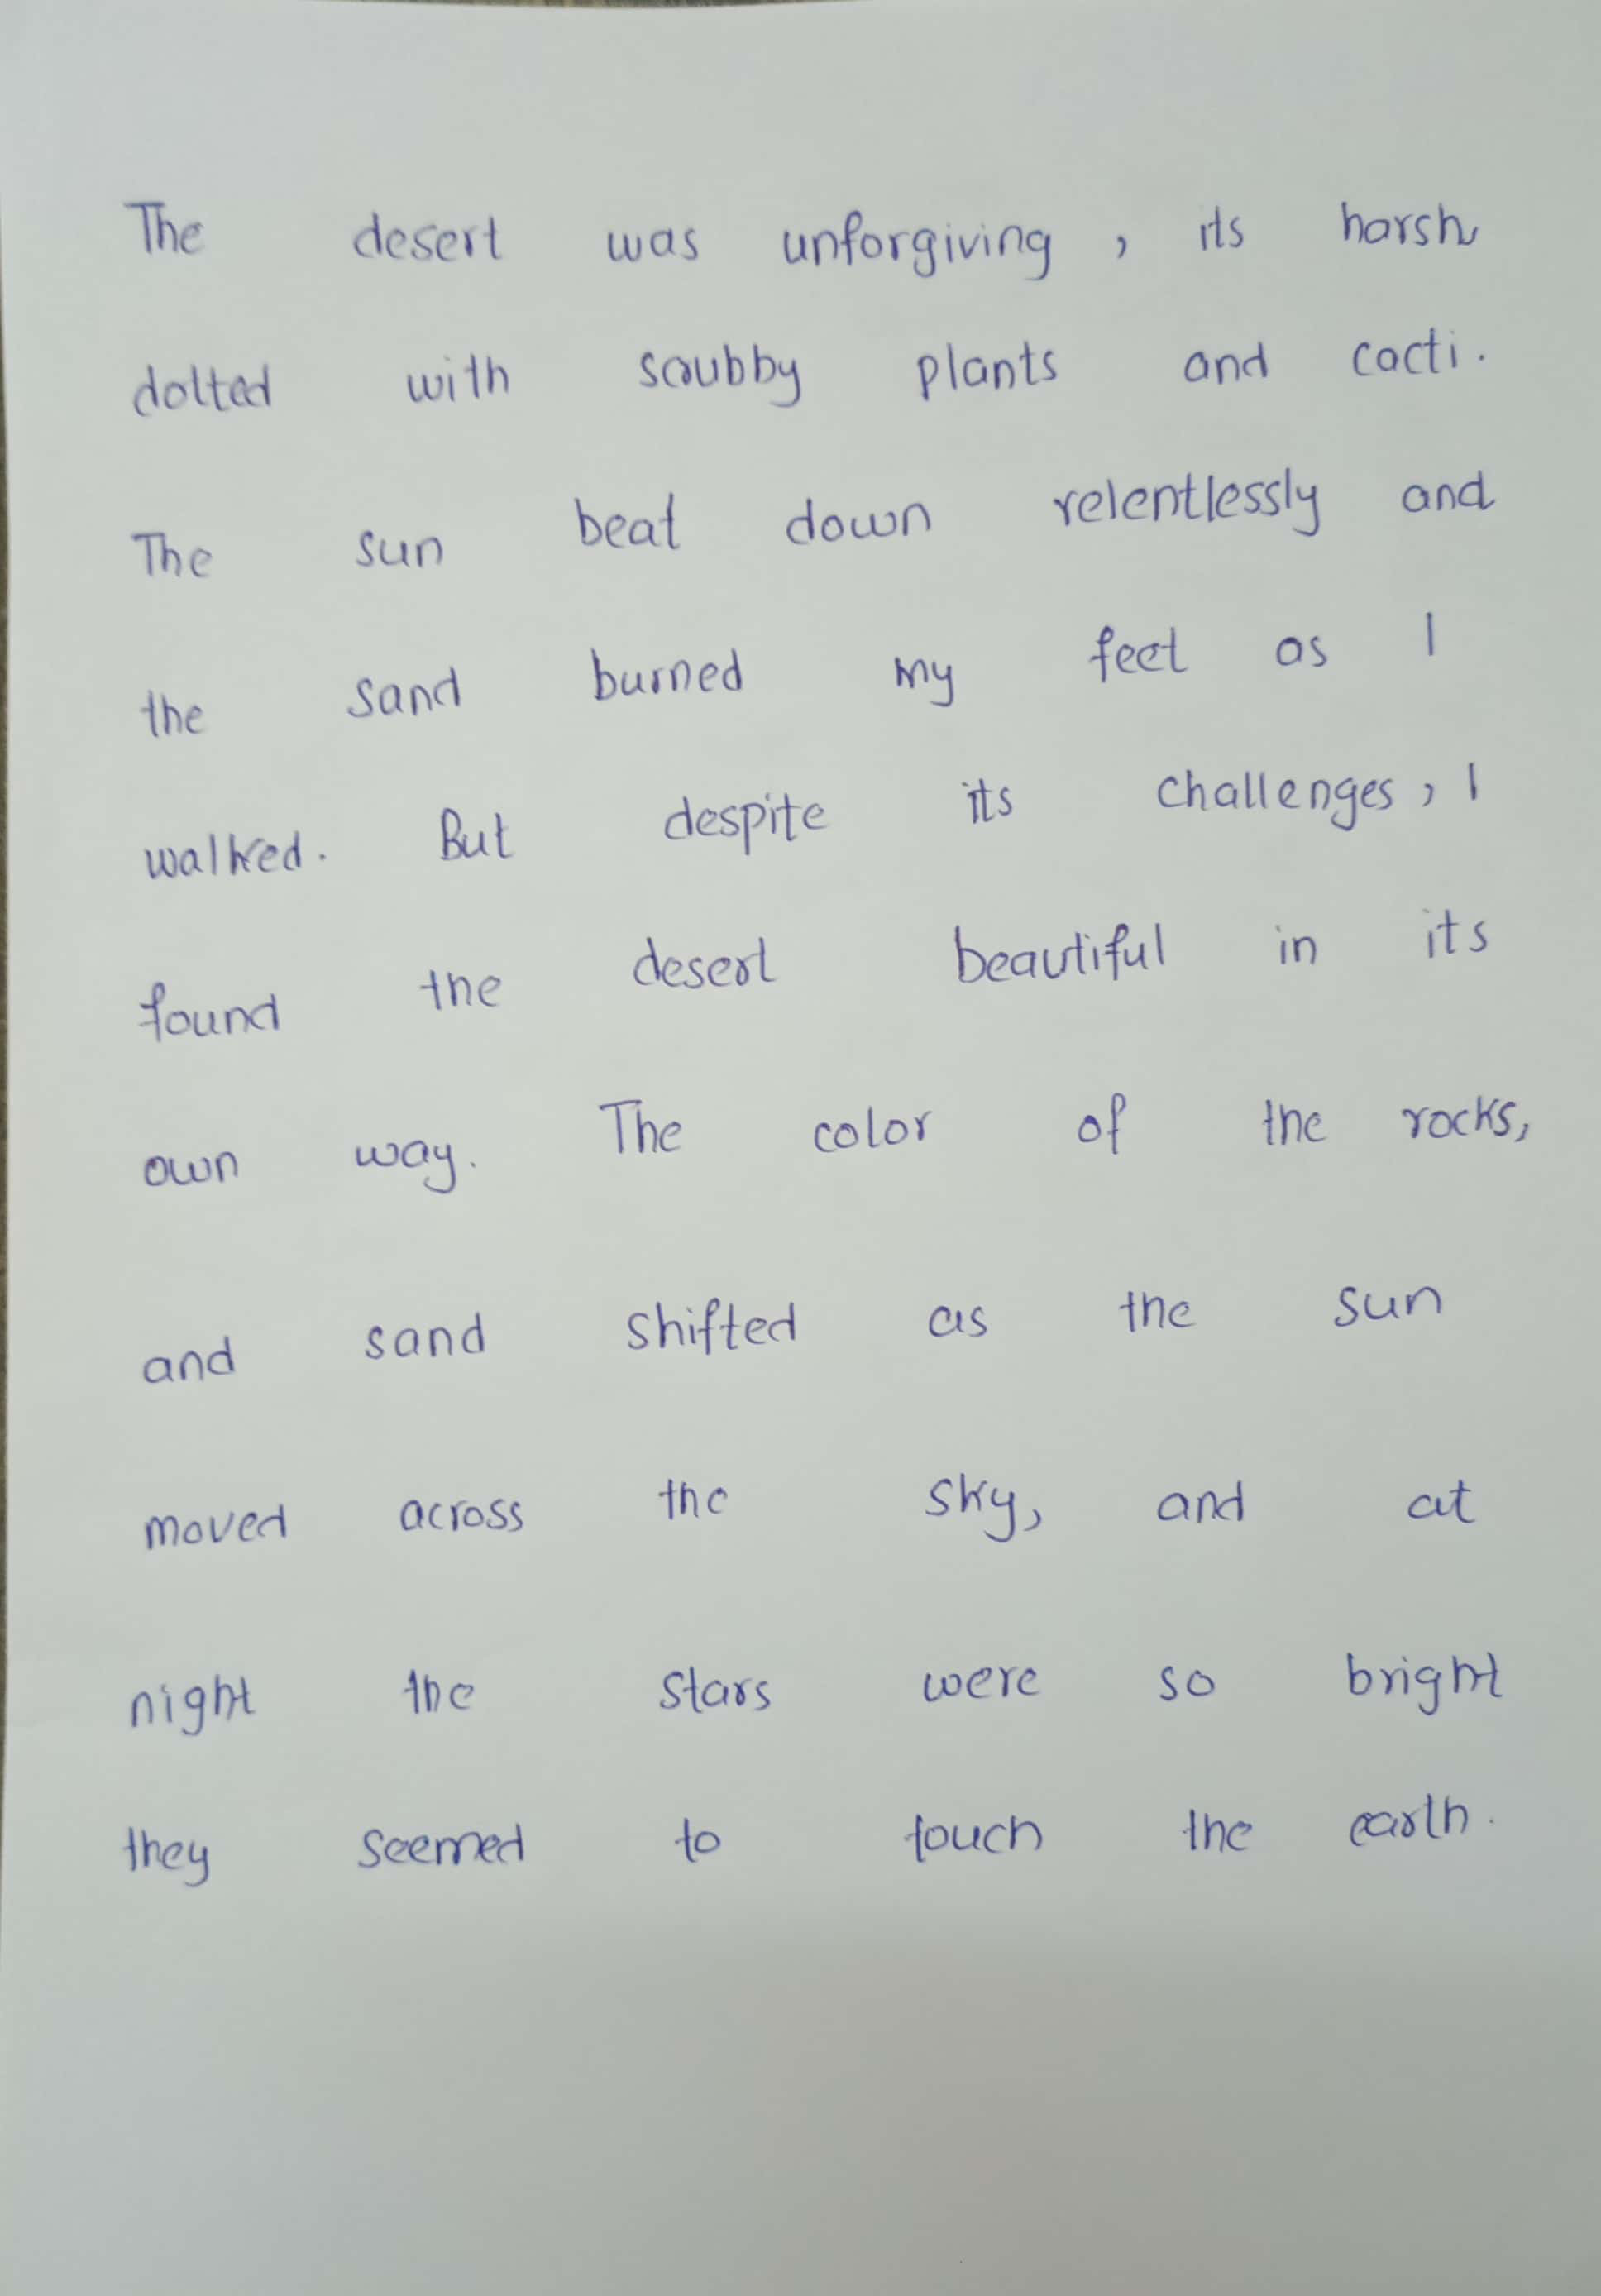 The desert was unforgiving, its harsh
dotted with scrubby plants and cacti.
The sun beat down relentlessly and
the sand burned my feet as I
walked. But despite its challenges, I
found the desert beautiful in its
own way. The color of the rocks,
and sand shifted as the sun
moved across the sky, and at
night the stars were so bright
they seemed to touch the earth.